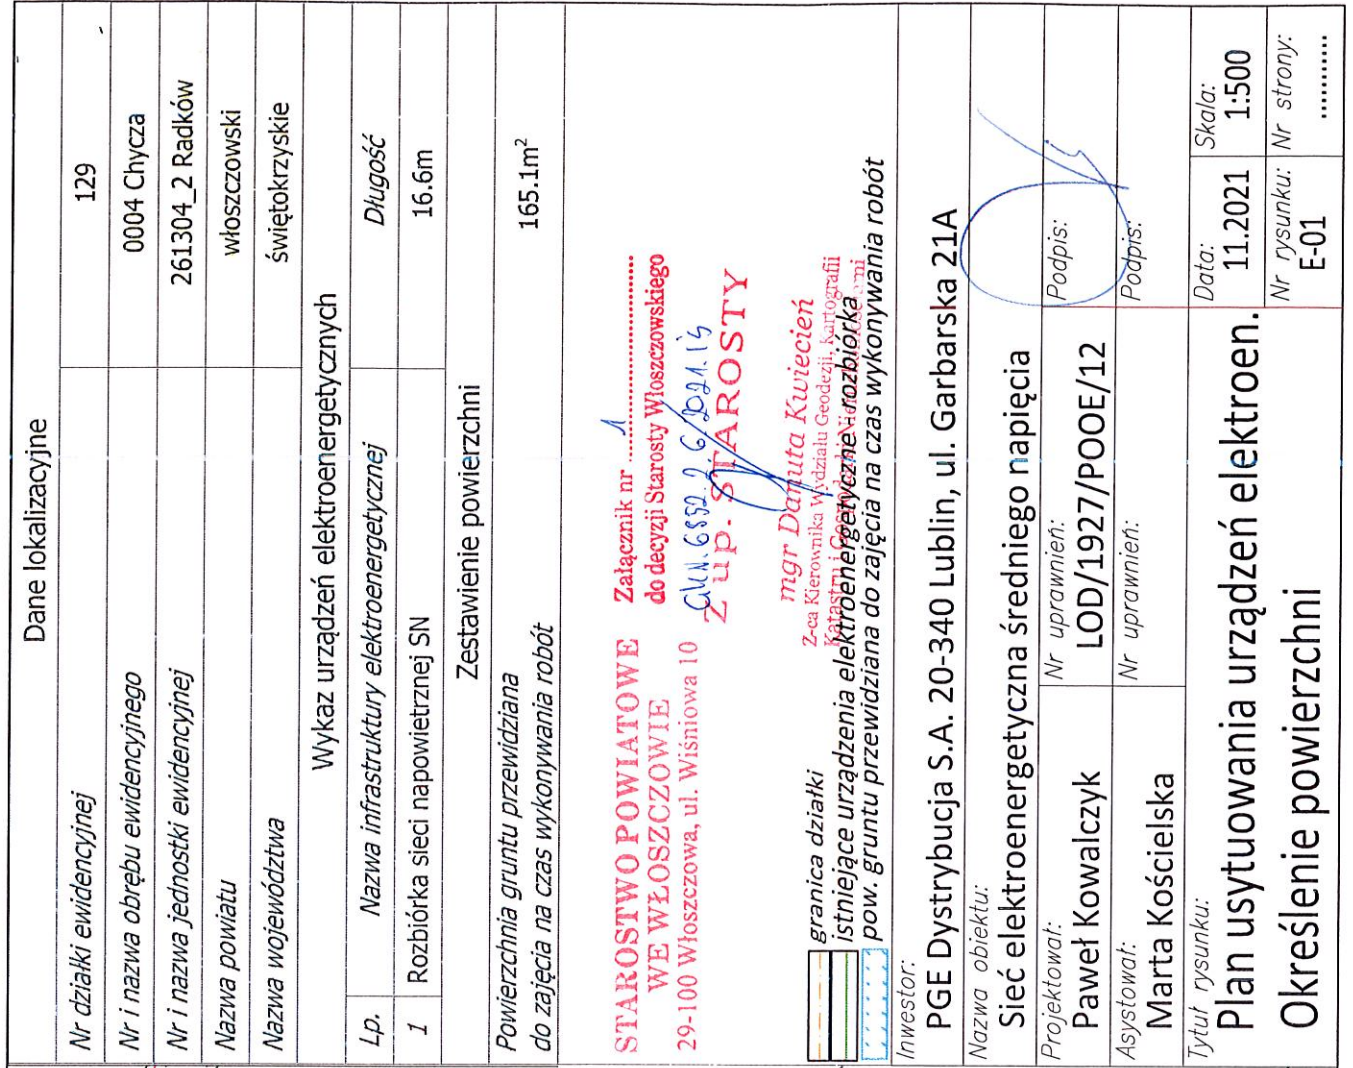 Dane lokalizacyjne
Nr działki ewidencyjnej 129
Nr i nazwa obrębu ewidencyjnego 0004 Chycza
Nr i nazwa jednostki ewidencyjnej 261304_2 Radków
Nazwa powiatu włoszczowski
Nazwa województwa świętokrzyskie
Wykaz urządzeń elektroenergetycznych
Lp. Nazwa infrastruktury elektroenergetycznej Długość
1 Rozbiórka sieci napowietrznej SN 16.6m
Zestawienie powierzchni
Powierzchnia gruntu przewidziana
do zajęcia na czas wykonywania robót 165.1m²
STAROSTWO POWIATOWE
WE WŁOSZCZOWIE
29-100 Włoszczowa, ul. Wiśniowa 10
Załącznik nr 1
do decyzji Starosty Włoszczowskiego
GKN.6852.2.6.2021.IS
Z up. STAROSTY
mgr Danuta Kwiecień
Z-ca Kierownika Wydziału Geodezji, Kartografii
Katastru i Gospodarki Nieruchomościami
granica działki
istniejące urządzenia elektroenergetyczne - rozbiórka
pow. gruntu przewidziana do zajęcia na czas wykonywania robót
Inwestor:
PGE Dystrybucja S.A. 20-340 Lublin, ul. Garbarska 21A
Nazwa obiektu:
Sieć elektroenergetyczna średniego napięcia
Projektował: Nr uprawnień: Podpis:
Paweł Kowalczyk LOD/1927/POOE/12
Asystował: Nr uprawnień: Podpis:
Marta Kościelska
Tytuł rysunku: Data: Skala:
Plan usytuowania urządzeń elektroen. 11.2021 1:500
Określenie powierzchni
Nr rysunku: Nr strony:
E-01 ............